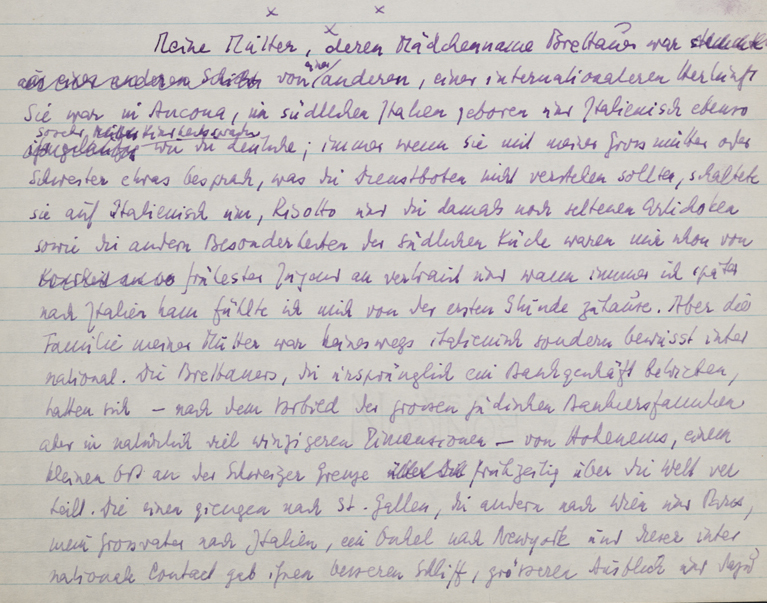 Meine Mutter, deren Mädchenname Brettauer war
von einer anderen, einer internationaleren Herkunft
Sie war in Ancona, im südlichen Italien geboren und Italienisch ebenso
wie die deutsche; immer wenn sie mit meiner Grossmutter oder
Schwester etwas besprach, was die Dienstboten nicht verstehen sollten, schaltete
sie auf Italienisch um, Risotto und die damals noch seltenen Artichoken
sowie die andern Besonderheiten der südlichen Küche waren mir schon von
frühester Jugend an vertraut und wann immer ich später
nach Italien kam fühlte ich mich von der ersten Stunde zuhause. Aber die
Familie meiner Mutter war keineswegs italienisch sondern bewusst inter
national. Die Brettauers, die ursprünglich ein Bankgeschäft betrieben,
hatten sich – nach dem Vorbild der grossen jüdischen Bankiersfamilien
aber in natürlich viel winzigeren Dimensionen – von Hohenems, einem
kleinen Ort an der Schweizer Grenze frühzeitig über die Welt ver
teilt. Die einen giengen nach St. Gallen, die andern nach Wien und Paris,
mein Grossvater nach Italien, ein Onkel nach Newyork und dieser inter
nationale Contact gab ihnen besseren Schliff, grösseren Ausblick und